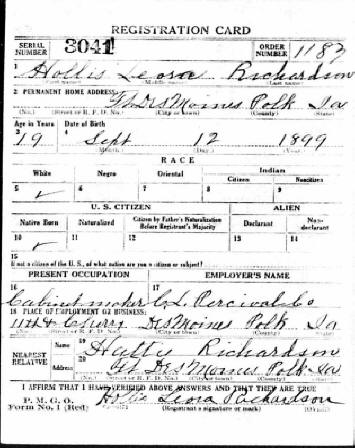 REGISTRATION CARD
SERIAL NUMBER 3041 ORDER NUMBER 1183
1 Hollis Leora Richardson
(First name) (Middle name) (Last name)
2 PERMANENT HOME ADDRESS:
Ft Des Moines Polk Ia
(No.) (Street or R. F. D. No.) (City or town) (County) (State)
Age in Years Date of Birth
3 19 4 Sept 12 1899
(Month.) (Day.) (Year.)
RACE
White Negro Oriental Indian
Citizen Noncitizen
5 ✓ 6 7 8 9
U. S. CITIZEN ALIEN
Native Born Naturalized Citizen by Father's Naturalization Before Registrant's Majority Declarant Non-declarant
10 ✓ 11 12 13 14
15
If not a citizen of the U. S., of what nation are you a citizen or subject?
PRESENT OCCUPATION EMPLOYER'S NAME
16 Cabinet maker 17 C. L. Percival Co
18 PLACE OF EMPLOYMENT OR BUSINESS:
11th & Cherry Des Moines Polk Ia
(No.) (Street or R. F. D. No.) (City or town) (County) (State)
NEAREST RELATIVE
19 Hatty Richardson
20 Ft Des Moines Polk Ia
(No.) (Street or R. F. D. No.) (City or town) (County) (State)
I AFFIRM THAT I HAVE VERIFIED ABOVE ANSWERS AND THAT THEY ARE TRUE
P. M. G. O.
Form No. 1 (Red) Hollis Leora Richardson
(Registrant's signature or mark)